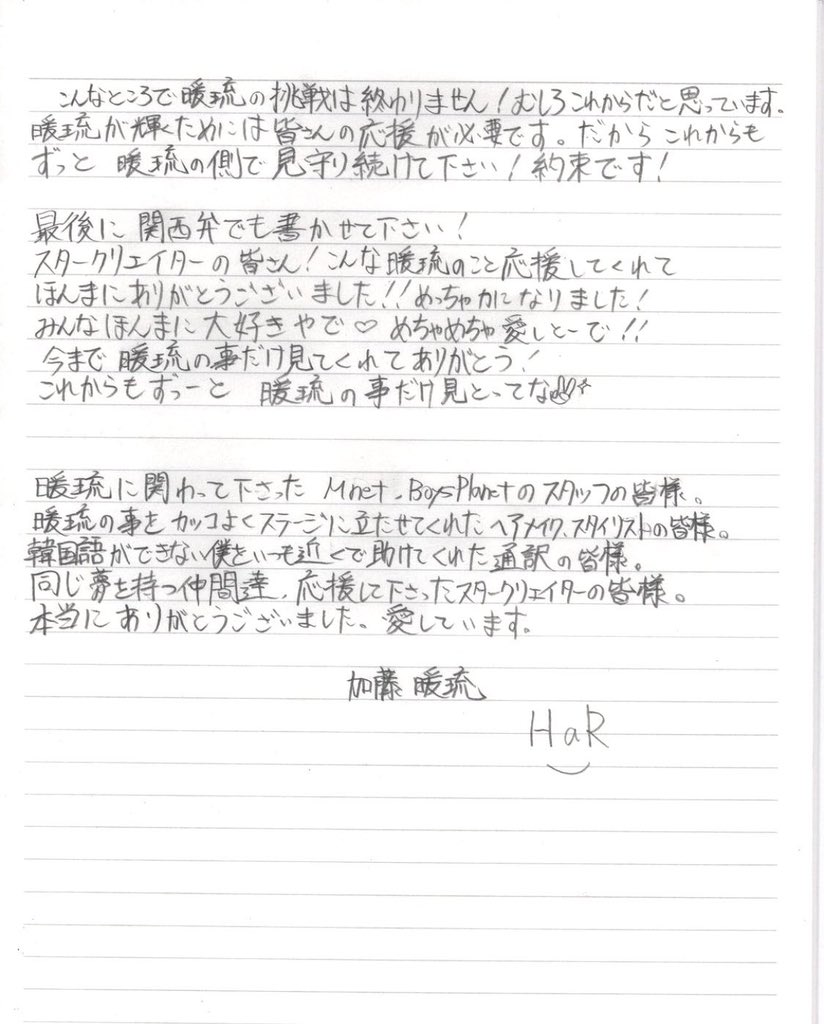 こんなところで暖琉の挑戦は終わりません!むしろこれからだと思っています。
暖琉が輝くためには皆さんの応援が必要です。だからこれからも
ずっと 暖琉の側で見守り続けて下さい!約束です!
最後に関西弁でも書かせて下さい!
スタークリエイターの皆さん!こんな暖琉のこと応援してくれて
ほんまにありがとうございました!!めっちゃ力になりました!
みんなほんまに大好きやで♡ めちゃめちゃ愛しとーで!!
今まで 暖琉の事だけ見てくれてありがとう!
これからもずっーと 暖琉の事だけ見とってな
暖琉に関わって下さった Mnet、BoysPlanetのスタッフの皆様。
暖琉の事をカッコよくステージに立たせてくれたヘアメイク、スタイリストの皆様。
韓国語ができない僕をいつも近くで助けてくれた通訳の皆様。
同じ夢を持つ仲間達、応援して下さったスタークリエイターの皆様。
本当にありがとうございました。愛しています。
加藤 暖琉
HaR